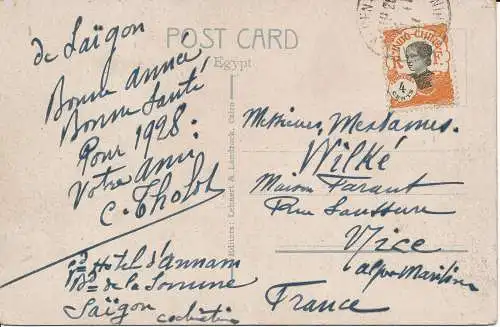 POST CARD
Egypt
de Saïgon
Bonne année,
Bonne Santé
Pour 1928.
Votre ami
C. Tholot
1 bd Hotel d'Annam
Bd de la Somme
Saïgon
Editors: Lehnert & Landrock, Cairo
INDO-CHINE
R F
4
CENTS
Messieurs, Mesdames.
Wilké
Maison Faraut
Rue Saussure
Nice
alpes Maritimes
France